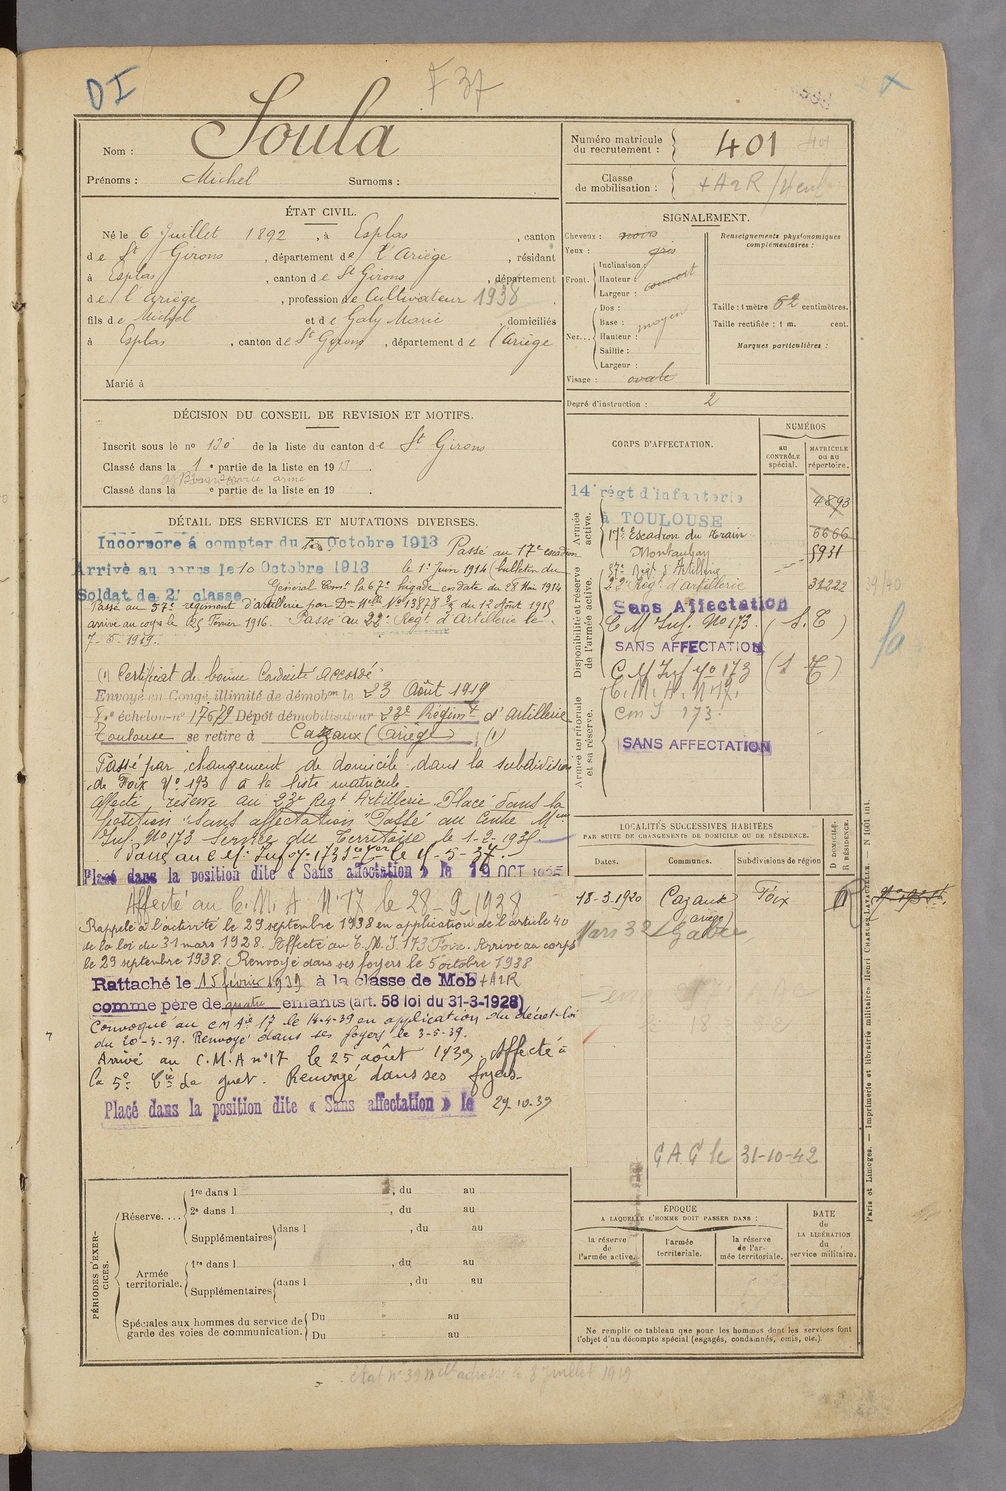 DI
F 37
Nom : Soula
Prénoms : Michel Surnoms :
Numéro matricule du recrutement : 401
Classe de mobilisation : +A2R
ÉTAT CIVIL.
Né le 6 Juillet 1892, à Esplas, canton
de St Girons, département de l'Ariège, résidant
à Esplas, canton de St Girons, département
de l'Ariège, profession de Cultivateur 1938.
fils de Michel et de Galy Marie, domiciliés
à Esplas, canton de St Girons, département de l'Ariège
Marié à
SIGNALEMENT.
Cheveux : noirs
Yeux : gris
Front.
Inclinaison :
Hauteur : couvert
Largeur :
Nez...
Dos :
Base : moyen
Hauteur :
Saillie :
Largeur :
Visage : ovale
Renseignements physionomiques complémentaires :
Taille : 1 mètre 62 centimètres.
Taille rectifiée : 1 m. cent.
Marques particulières :
Degré d'instruction : 2
DÉCISION DU CONSEIL DE REVISION ET MOTIFS.
Inscrit sous le no 130 de la liste du canton de St Girons
Classé dans la 1e partie de la liste en 1913.
Bon service armé
Classé dans la e partie de la liste en 19 .
DÉTAIL DES SERVICES ET MUTATIONS DIVERSES.
Incorporé à compter du Octobre 1913 Passé au 17e escadron
Arrivé au corps le 10 Octobre 1913 le 1er Juin 1914 (bulletin du
Soldat de 2e classe Général Comt la 67e brigade en date du 28 Mai 1914
Passé au 57e régiment d'artillerie par Don Mlle No 13878 3/5 du 12 Août 1915
arrivé au corps le 25 Février 1916. Passé au 23e Régt d'artillerie le
7-5-1919.
(1) Certificat de bonne Conduite Accordé
Envoyé en Congé illimité de démobon le 23 Août 1919
8e échelon no 17679 Dépôt démobilisateur 23e Régimt d'Artillerie
Toulouse se retire à Cazaux (Ariège) (1)
Passé par changement de domicile dans la subdivision
de Foix No 193 à la liste matricule.
Affecté réserve au 23e Regt Artillerie. Placé dans la
position "Sans affectation" Passé au Centre Mom
Inf. No 173 Service du Territoire le 1-2-1935
Passé au C. M. Inf. No 173 le 15-5-37.
Placé dans la position dite « Sans affectation » le 19 OCT
Affecté au C. M. A No 17 le 28-9-1938
Rappelé à l'activité le 29 septembre 1938 en application de l'article 40
de la loi du 31 mars 1928. Affecté au C. M. I 173 Foix. Arrivé au corps
le 29 septembre 1938. Renvoyé dans ses foyers le 5 octobre 1938
Rattaché le 15 février 1939 à la classe de Mob +A2R
comme père de quatre enfants (art. 58 loi du 31-3-1928)
Convoqué au C M Aie 17 le 14-4-39 en application du décret-loi
du 20-3-39. Renvoyé dans ses foyers le 3-5-39.
Arrivé au C. M. A no 17 le 25 août 1939. Affecté à
la 5e Cie de guet. Renvoyé dans ses foyers.
Placé dans la position dite « Sans affectation » le 29-10-39
CORPS D'AFFECTATION.
NUMÉROS
AU CONTRÔLE spécial.
MATRICULE ou au répertoire.
Armée active.
14e régt d'Infanterie 4893
à TOULOUSE
17e Escadron du train 6666
Montauban 5931
Disponibilité et réserve de l'armée active.
57e Régt d'Artillerie
23e Régt d'artillerie 31222
Sans Affectation
C M Inf. No 173. (S. T)
SANS AFFECTATION
C. M Inf No 173 (S T)
Armée territoriale et sa réserve.
C. M. A. No 17.
Cm I 173.
SANS AFFECTATION
39/40
LOCALITÉS SUCCESSIVES HABITÉES
PAR SUITE DE CHANGEMENTS DE DOMICILE OU DE RÉSIDENCE.
Dates. Communes. Subdivisions de région
D DOMICILE. R RÉSIDENCE.
18-3-1920 Cazaux (Ariège) Foix R
Mars 32
C A C le 31-10-42
PÉRIODES D'EXERCICES.
Réserve....
1re dans l , du au
2e dans l , du au
Supplémentaires dans l , du au
Armée territoriale.
1re dans l , du au
Supplémentaires dans l , du au
Spéciales aux hommes du service de garde des voies de communication.
Du au
Du au
ÉPOQUE
A LAQUELLE L'HOMME DOIT PASSER DANS :
la réserve de l'armée active.
l'armée territoriale.
la réserve de l'armée territoriale.
DATE de LA LIBÉRATION du service militaire.
Ne remplir ce tableau que pour les hommes dont les services font l'objet d'un décompte spécial (engagés, condamnés, omis, etc.).
Paris et Limoges. — Imprimerie et librairie militaires Henri CHARLES-LAVAUZELLE. — N 1001 int.
État no 39 adressé le 8 juillet 1919